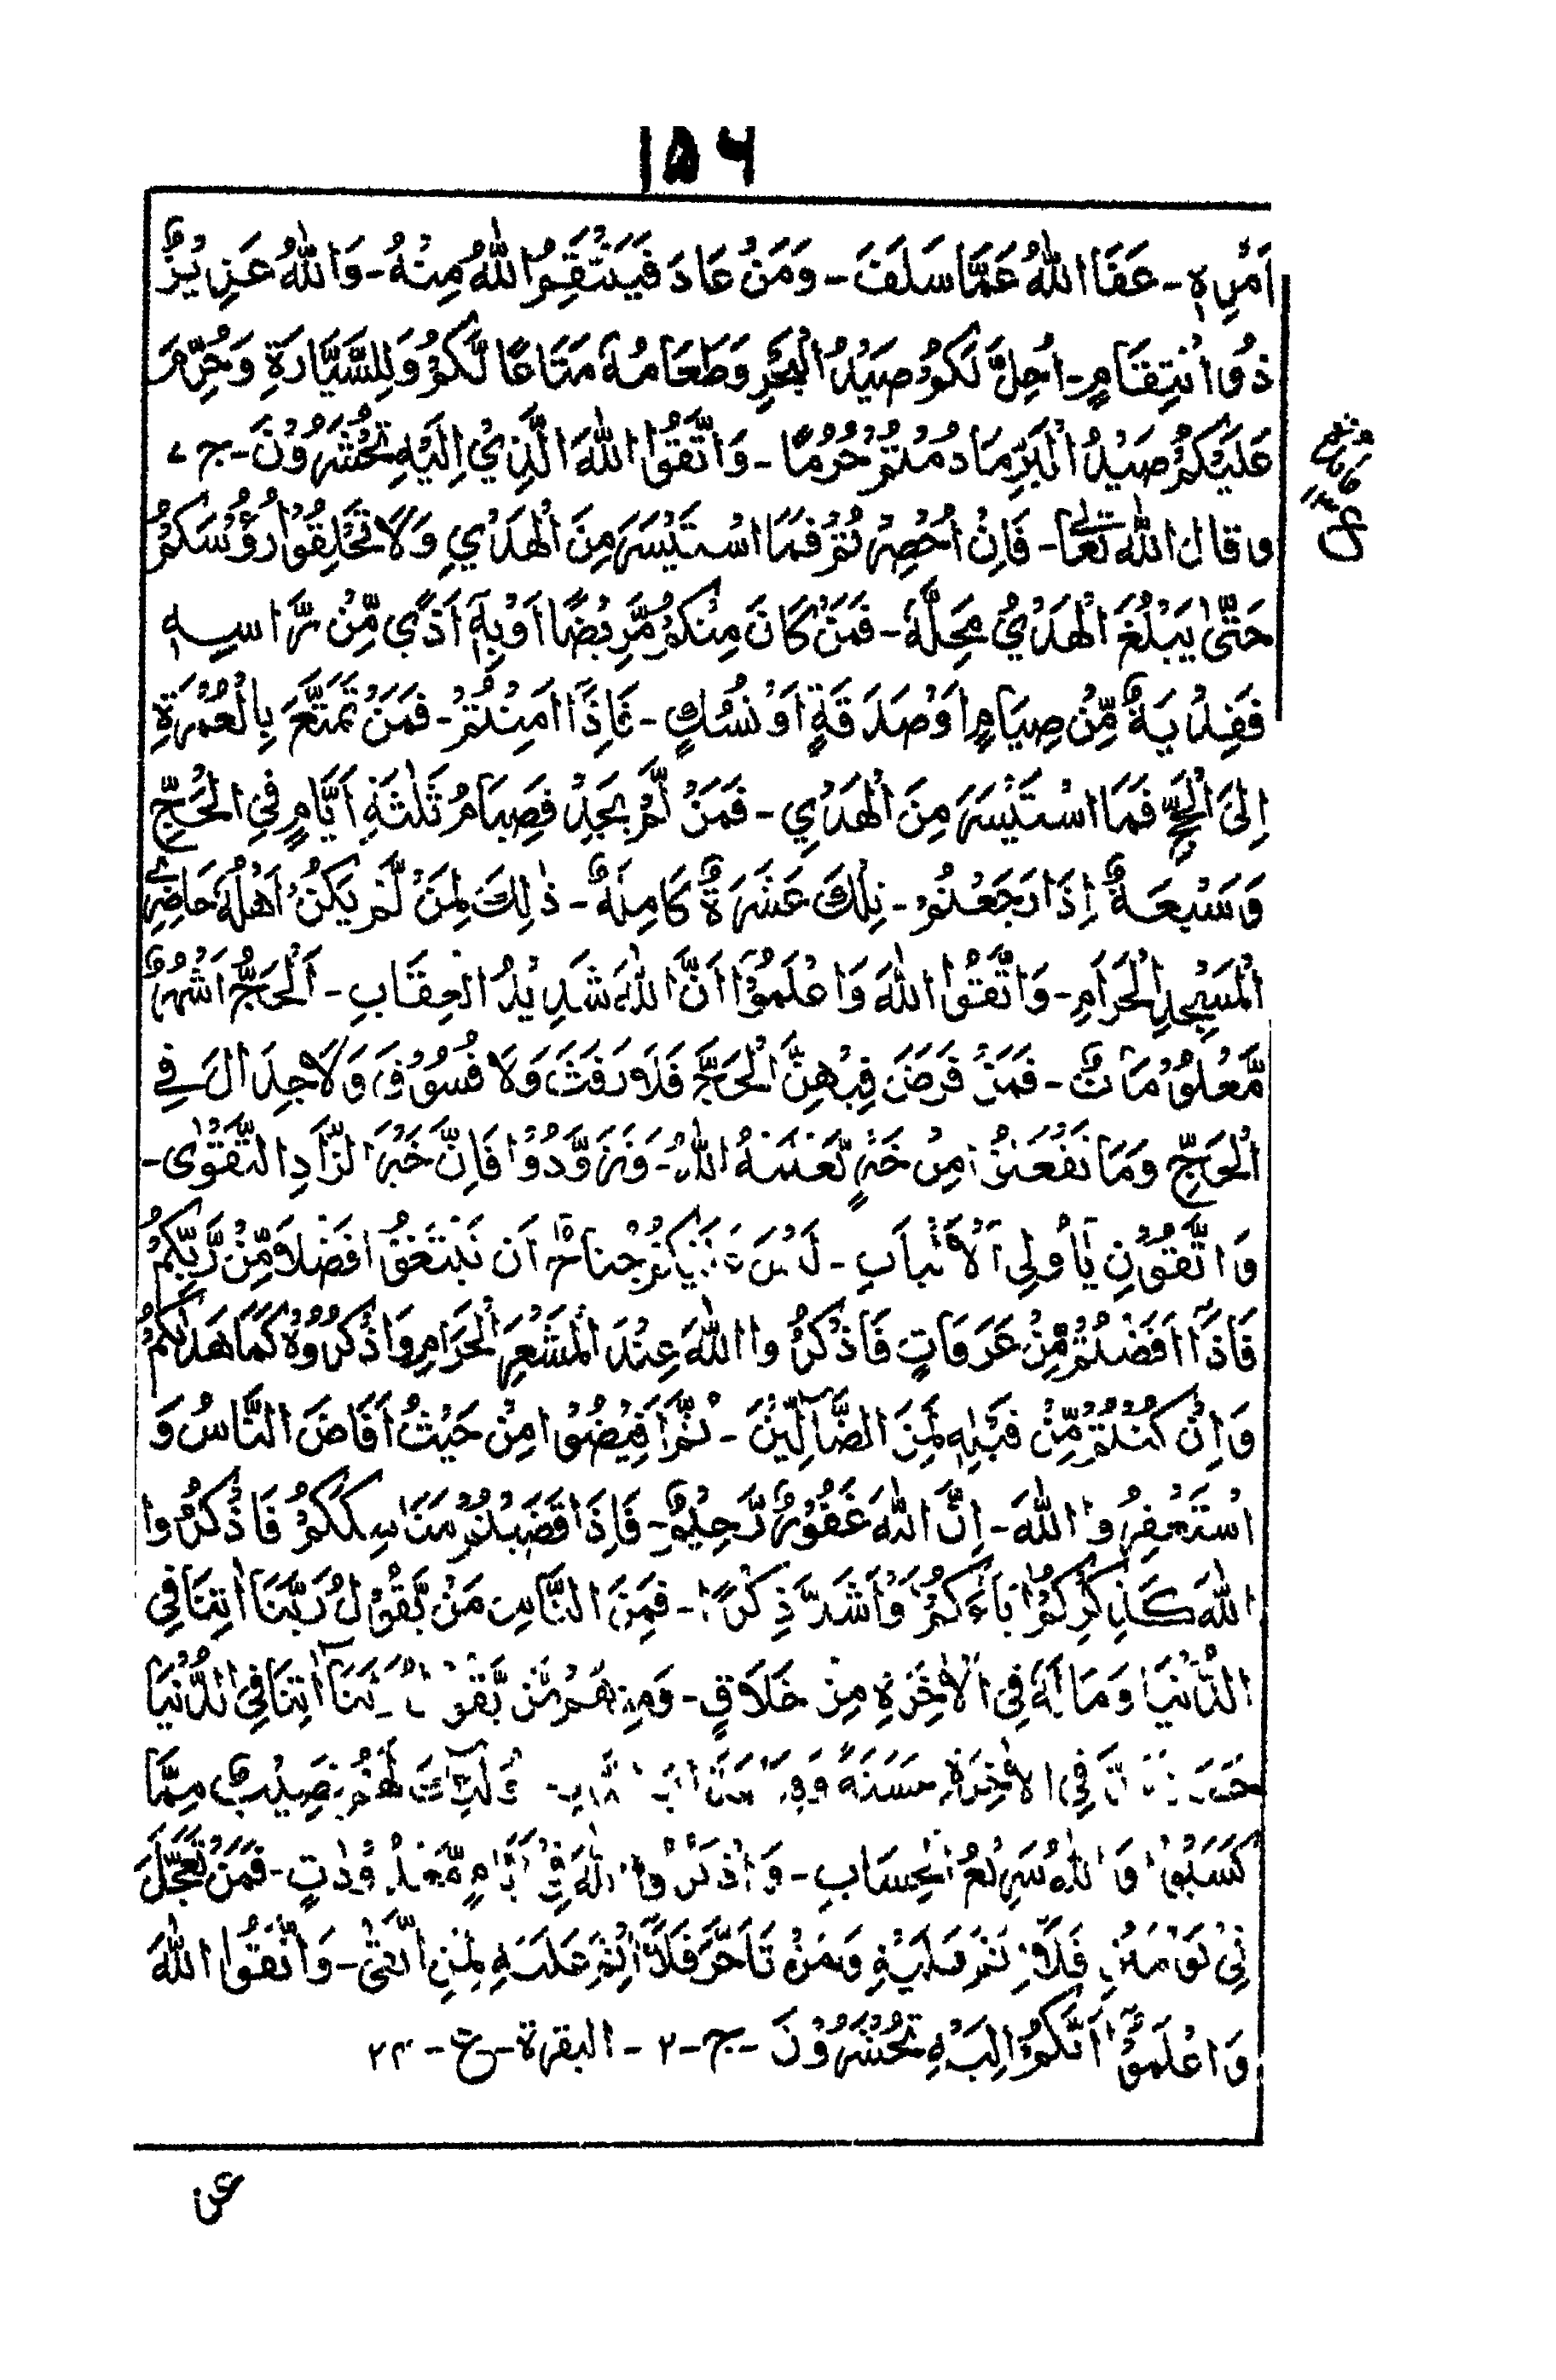 ۱۵۶
اَمْرِهٖ - عَفَا اللّٰهُ عَمَّا سَلَفَ - وَمَنْ عَادَ فَيَنْتَقِمُ اللّٰهُ مِنْهُ - وَاللّٰهُ عَزِيْزٌ
ذُو انْتِقَامٍ - اُحِلَّ لَكُمْ صَيْدُ الْبَحْرِ وَطَعَامُهٗ مَتَاعًا لَّكُمْ وَلِلسَّيَّارَةِ وَحُرِّمَ
عَلَيْكُمْ صَيْدُ الْبَرِّ مَا دُمْتُمْ حُرُمًا - وَاتَّقُوا اللّٰهَ الَّذِيْ اِلَيْهِ تُحْشَرُوْنَ - ج ۷
مائدہ
ع ۱۳
وقال اللّٰه تعالٰى - فَاِنْ اُحْصِرْتُمْ فَمَا اسْتَيْسَرَ مِنَ الْهَدْيِ وَلَا تَحْلِقُوْا رُؤُسَكُمْ
حَتّٰى يَبْلُغَ الْهَدْيُ مَحِلَّهٗ - فَمَنْ كَانَ مِنْكُمْ مَّرِيْضًا اَوْ بِهٖٓ اَذًى مِّنْ رَّاْسِهٖ
فَفِدْيَةٌ مِّنْ صِيَامٍ اَوْ صَدَقَةٍ اَوْ نُسُكٍ - فَاِذَآ اَمِنْتُمْ - فَمَنْ تَمَتَّعَ بِالْعُمْرَةِ
اِلَى الْحَجِّ فَمَا اسْتَيْسَرَ مِنَ الْهَدْيِ - فَمَنْ لَّمْ يَجِدْ فَصِيَامُ ثَلٰثَةِ اَيَّامٍ فِي الْحَجِّ
وَسَبْعَةٌ اِذَا رَجَعْتُمْ - تِلْكَ عَشَرَةٌ كَامِلَةٌ - ذٰلِكَ لِمَنْ لَّمْ يَكُنْ اَهْلُهٗ حَاضِرِي
الْمَسْجِدِ الْحَرَامِ - وَاتَّقُوا اللّٰهَ وَاعْلَمُوْٓا اَنَّ اللّٰهَ شَدِيْدُ الْعِقَابِ - اَلْحَجُّ اَشْهُرٌ
مَّعْلُوْمَاتٌ - فَمَنْ فَرَضَ فِيْهِنَّ الْحَجَّ فَلَا رَفَثَ وَلَا فُسُوْقَ وَلَا جِدَالَ فِي
الْحَجِّ وَمَا تَفْعَلُوْا مِنْ خَيْرٍ يَّعْلَمْهُ اللّٰهُ - وَتَزَوَّدُوْا فَاِنَّ خَيْرَ الزَّادِ التَّقْوٰى -
وَاتَّقُوْنِ يٰٓاُولِي الْاَلْبَابِ - لَيْسَ عَلَيْكُمْ جُنَاحٌ اَنْ تَبْتَغُوْا فَضْلًا مِّنْ رَّبِّكُمْ
فَاِذَآ اَفَضْتُمْ مِّنْ عَرَفَاتٍ فَاذْكُرُوا اللّٰهَ عِنْدَ الْمَشْعَرِ الْحَرَامِ وَاذْكُرُوْهُ كَمَا هَدٰىكُمْ
وَاِنْ كُنْتُمْ مِّنْ قَبْلِهٖ لَمِنَ الضَّآلِّيْنَ - ثُمَّ اَفِيْضُوْا مِنْ حَيْثُ اَفَاضَ النَّاسُ وَ
اسْتَغْفِرُوا اللّٰهَ - اِنَّ اللّٰهَ غَفُوْرٌ رَّحِيْمٌ - فَاِذَا قَضَيْتُمْ مَّنَاسِكَكُمْ فَاذْكُرُوا
اللّٰهَ كَذِكْرِكُمْ اٰبَآءَكُمْ اَوْ اَشَدَّ ذِكْرًا - فَمِنَ النَّاسِ مَنْ يَّقُوْلُ رَبَّنَا اٰتِنَا فِي
الدُّنْيَا وَمَا لَهٗ فِي الْاٰخِرَةِ مِنْ خَلَاقٍ - وَمِنْهُمْ مَّنْ يَّقُوْلُ رَبَّنَآ اٰتِنَا فِي الدُّنْيَا
حَسَنَةً فِي الْاٰخِرَةِ حَسَنَةً وَقِنَا عَذَابَ النَّارِ - اُولٰٓئِكَ لَهُمْ نَصِيْبٌ مِّمَّا
كَسَبُوْا وَاللّٰهُ سَرِيْعُ الْحِسَابِ - وَاذْكُرُوا اللّٰهَ فِيْٓ اَيَّامٍ مَّعْدُوْدٰتٍ - فَمَنْ تَعَجَّلَ
فِيْ يَوْمَيْنِ فَلَآ اِثْمَ عَلَيْهِ وَمَنْ تَاَخَّرَ فَلَآ اِثْمَ عَلَيْهِ لِمَنِ اتَّقٰى - وَاتَّقُوا اللّٰهَ
وَاعْلَمُوْٓا اَنَّكُمْ اِلَيْهِ تُحْشَرُوْنَ - ج - ۲ - البقرة - ع - ۲۴
عن